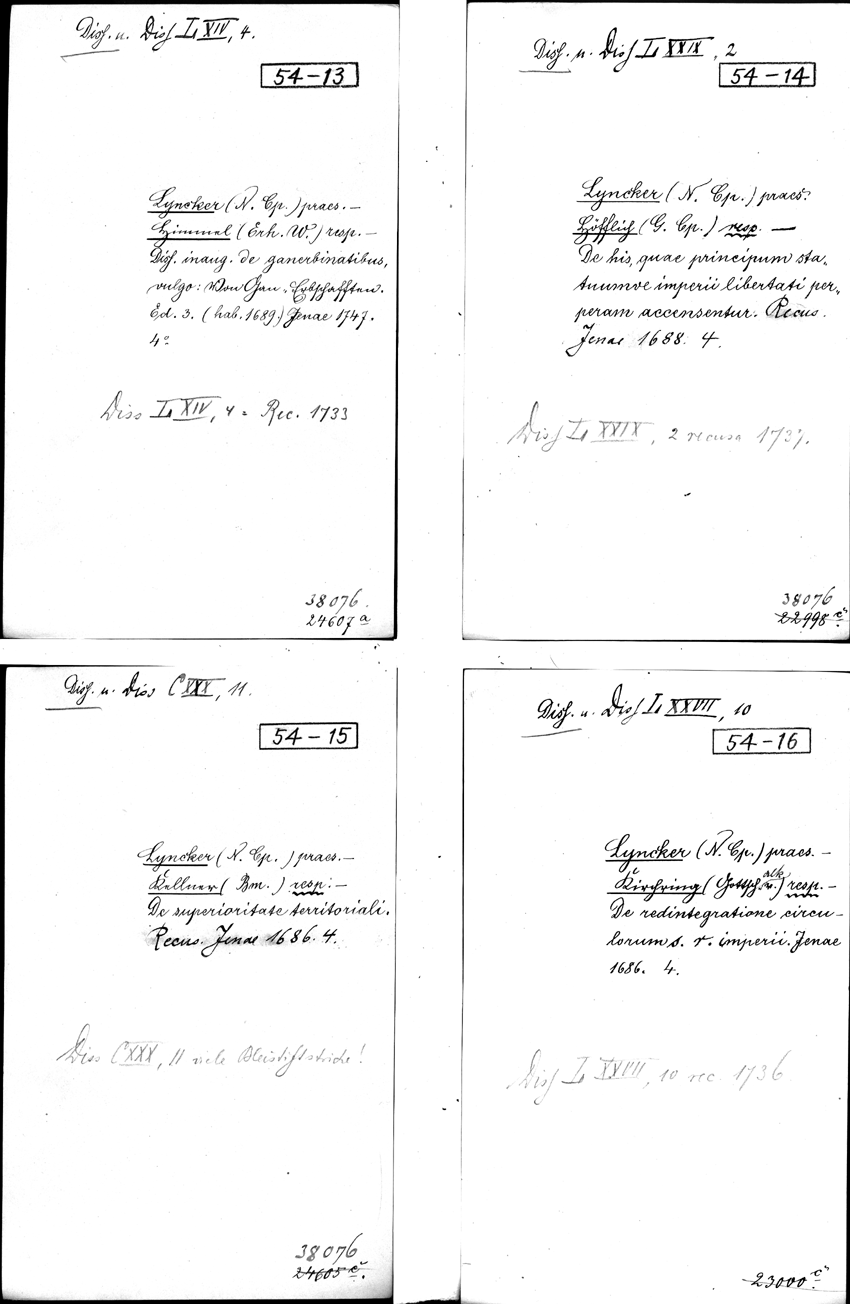 Diss. u. Diss L XIV, 4.
54-13
Lyncker (N. Cp.) praes. —
Himmel (Erh. W.) resp. —
Diss. inaug. de ganerbinatibus,
vulgo: Von Gan-Erbschafften.
Ed. 3. (hab. 1689.) Jenae 1747.
4°
Diss L XIV, 4 = Rec. 1733
38076.
24607 a
Diss. u. Diss L XXIX, 2
54-14
Lyncker (N. Cp.) praes.
Höfflich (G. Cp.) resp. —
De his, quae principum sta-
tuumve imperii libertati per-
peram accensentur. Recus.
Jenae 1688. 4.
Diss L XXIX, 2 recusa 1737.
38076
22998 c
Diss. u. Diss C XXX, 11.
54-15
Lyncker (N. Cp.) praes. —
Kellner (Bm.) resp. —
De superioritate territoriali.
Recus. Jenae 1686. 4.
Diss CXXX, 11 viele Bleistiftstriche!
38076
24605 c.
Diss. u. Diss L XXVII, 10
54-16
Lyncker (N. Cp.) praes. —
Kirchring (Gottsch. alk) resp. —
De redintegratione circu-
lorum s. r. imperii. Jenae
1686. 4.
Diss L XXVII, 10 rec. 1736
23000 c